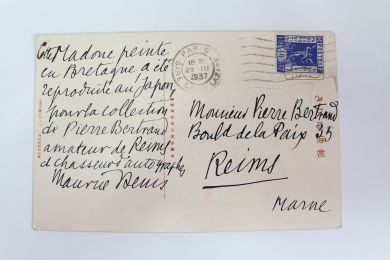 Cette Madone peinte
en Bretagne a été
reproduite au Japon
pour la Collection
de Pierre Bertrand
amateur de Reims
et chasseur d'autographes
Maurice Denis
PARIS
1937
Monsieur Pierre Bertrand
Bould de la Paix 35
Reims
Marne